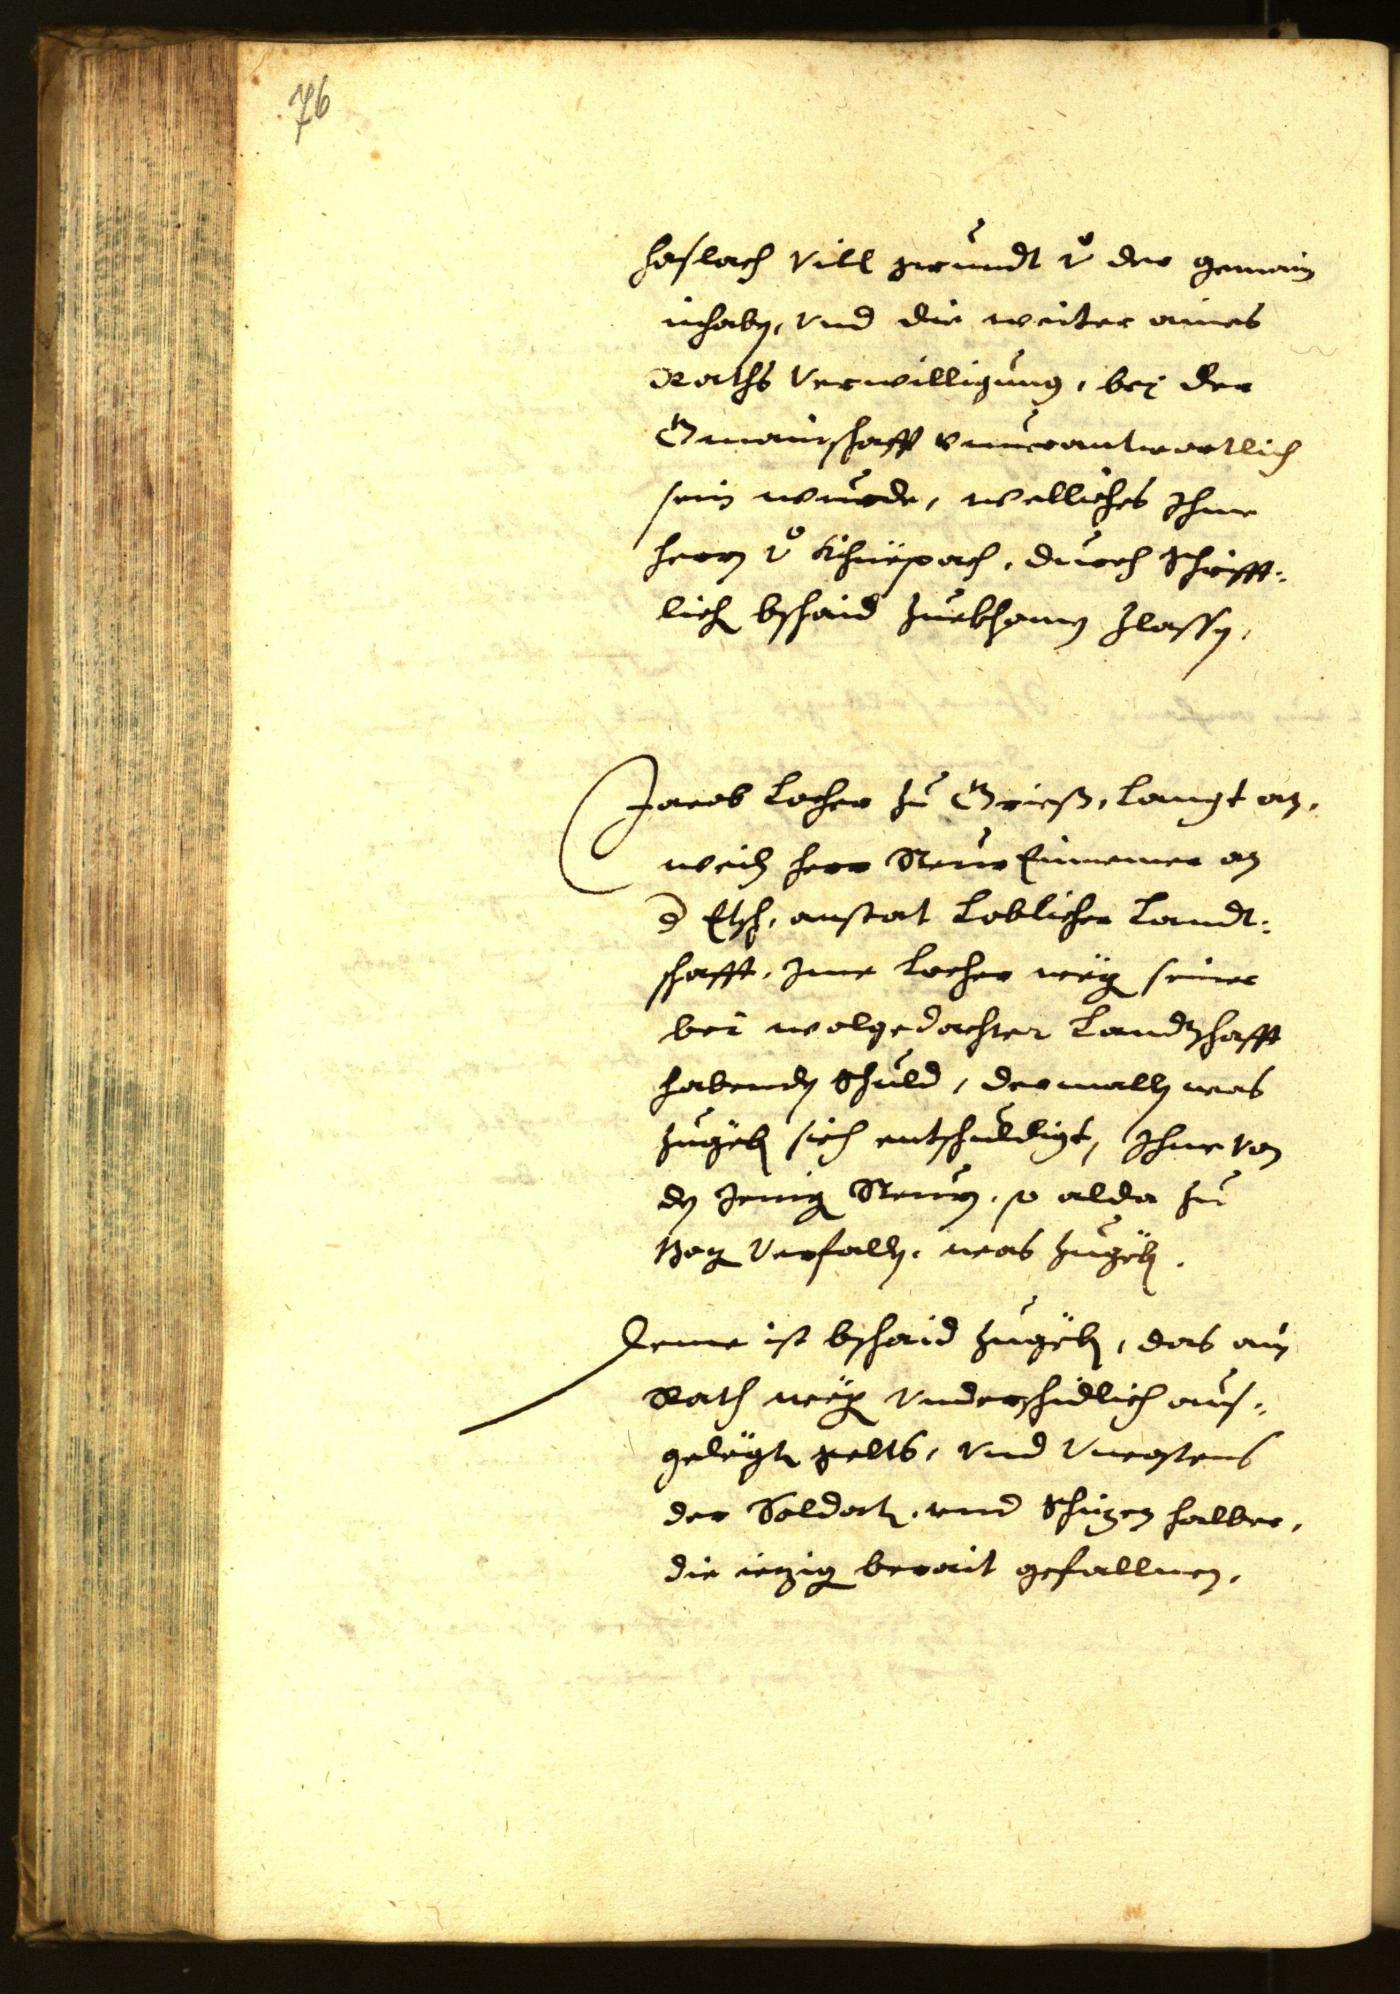 76
Haslach vill grundt vō der gemain
inhaben, vnd die weiter aines
Raths verwilligung, bej der
Gmainschafft vnuerantwortlich
sein wurde, welliches Ihme
Herrn vō Khüepach, durch Schrifft-
lichen bschaid zuekhomen zlassen.
Jacob Locher zu Grieß, langt an,
weiln Herr Steur Einnemer an
d Etsch, anstat Loblicher Landt-
schafft, Ime Locher wegen seiner
bei wolgedachter Landtschafft
habenden Schuld, dermallen was
zugeben sich entschuldigt, Ihme von
den Jenigen Steurn, so alda zu
Bozen verfallen, was zugeben.
Deme ist bschaid zugeben, das ain
Rath wegen vnderschidlich aus-
gelegten gelts, vnd vncostens
der Soldaten, vnd Schüzen halber,
die iezigen berait gefallnen,